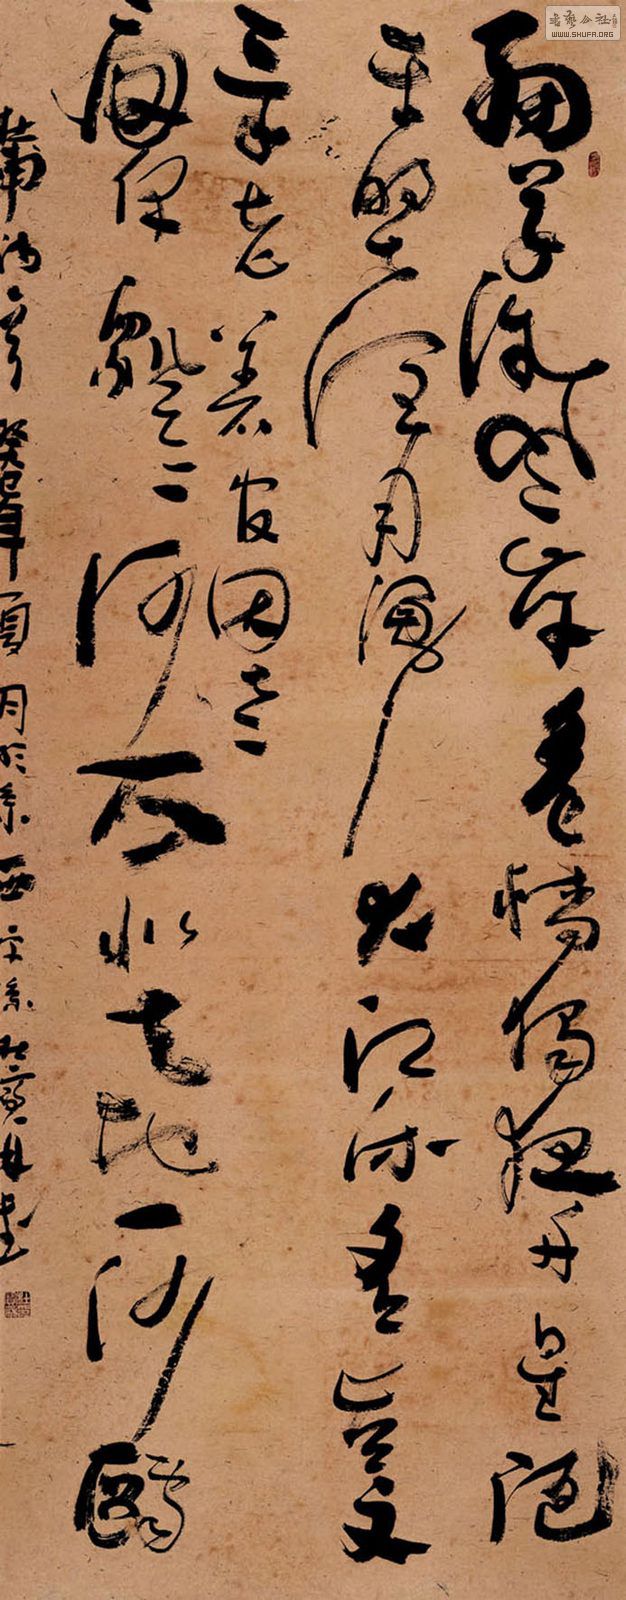 細草微風岸危檣獨夜舟星垂
平野闊月湧大江流名豈文
章著官因老
病休飄飄何所似天地一沙鷗
杜甫詩 癸巳年夏月於京西
書藝公社
WWW.SHUFA.ORG